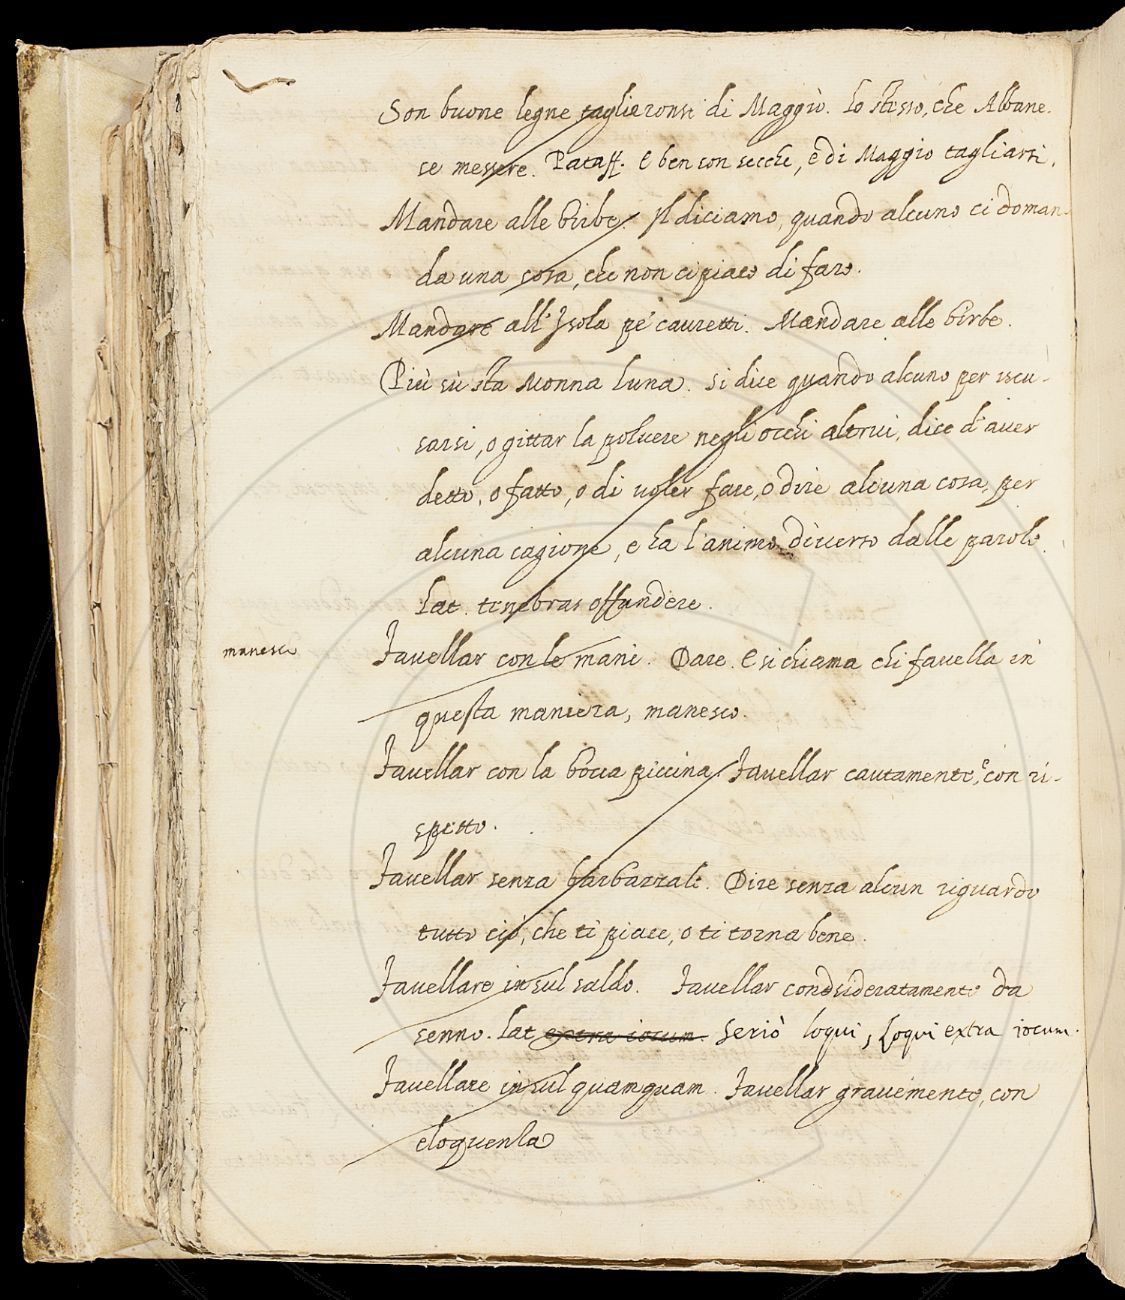 Son buone legne taglieronsi di Maggio. Lo stesso, che Albane-
se messere. Pataff. E ben son secche, e di Maggio tagliarsi.
Mandare alle birbe. Il diciamo, quando alcuno ci doman-
da una cosa, che non ci piace di fare.
Mandare all'Isola pe' cauretti. Mandare alle birbe.
Più sù sta Monna luna. Si dice quando alcuno per iscu-
sarsi, o gittar la poluere negli occhi altrui, dice d'auer
detto, o fatto, o di uoler fare, o dire alcuna cosa, per
alcuna cagione, e ha l'animo diuerso dalle parole.
Lat. tenebras offundere.
manesco
Fauellar con le mani. Dare. E si chiama chi fauella in
questa maniera, manesco.
Fauellar con la bocca piccina. Fauellar cautamente, e con ri-
spetto.
Fauellar senza barbazzale. Dire senza alcun riguardo
tutto ciò, che ti piace, o ti torna bene.
Fauellare in sul saldo. Fauellar condsideratamente da
senno. Lat. extra iocum. Seriò loqui, Loqui extra iocum.
Fauellare in sul quamquam. Fauellar grauemente, con
eloquenza